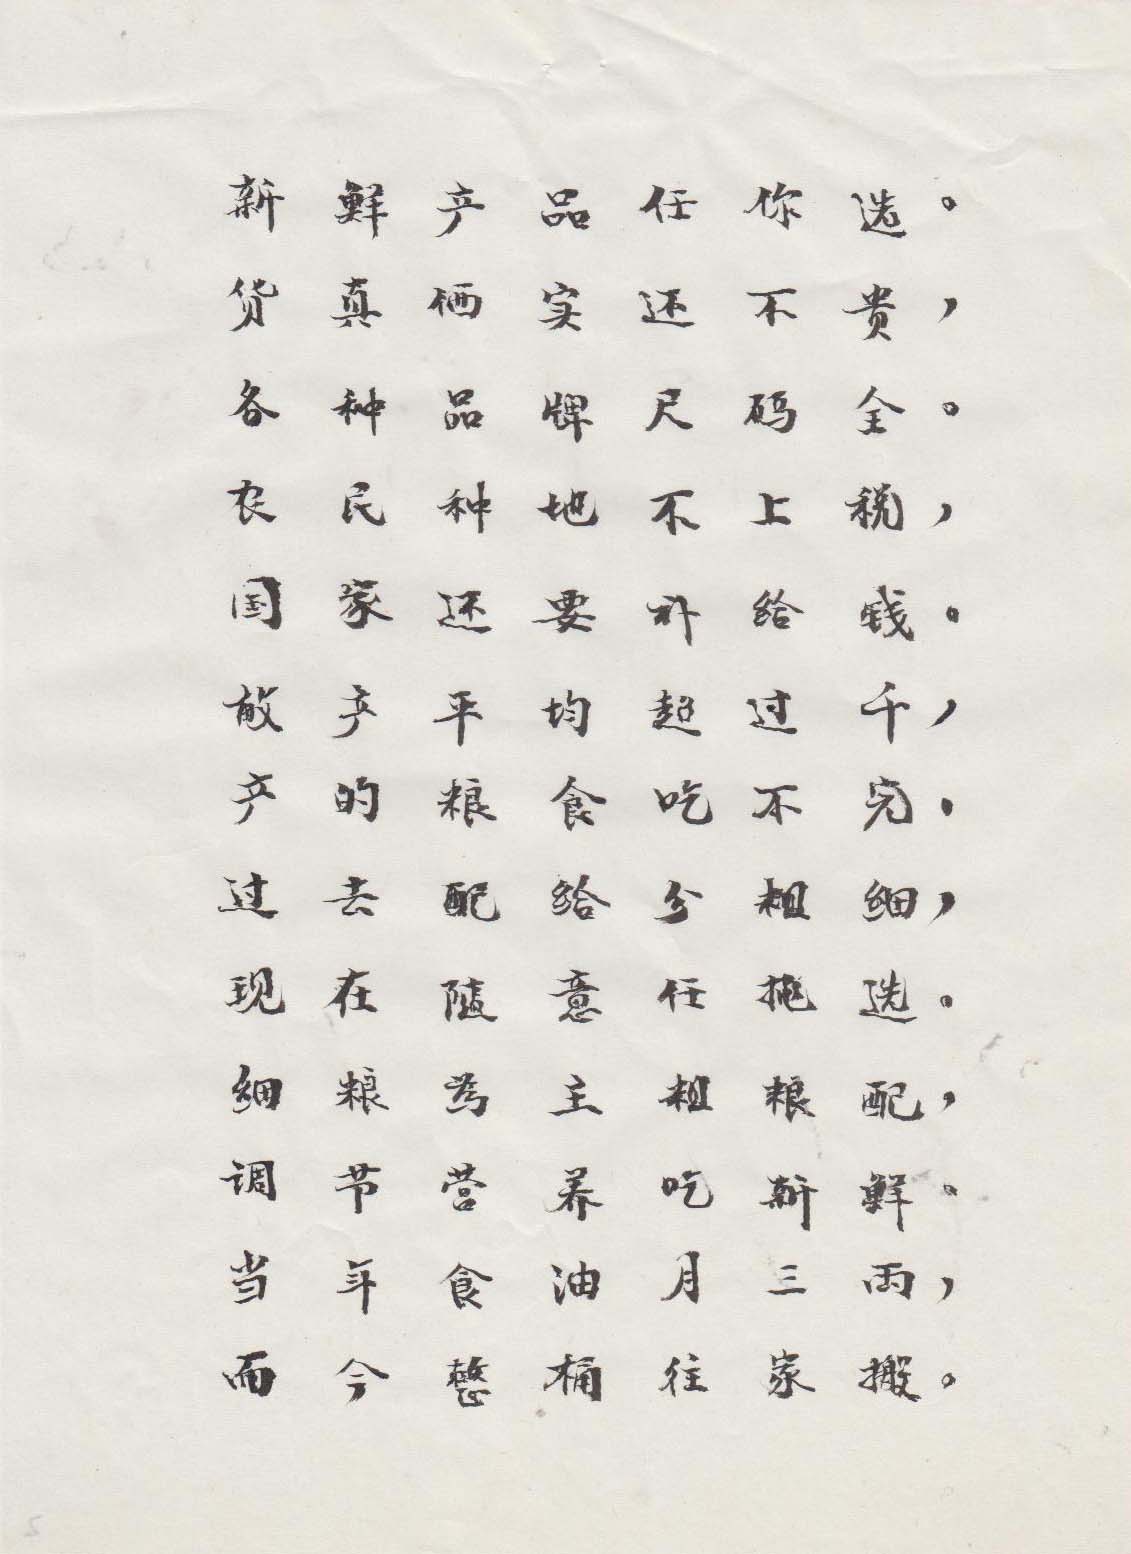 新鲜产品任你选。
货真价实还不贵，
各种品牌尺码全。
农民种地不上税，
国家还要补给钱。
亩产平均超过千，
产的粮食吃不完。
过去配给分粗细，
现在随意任挑选。
细粮为主粗粮配，
调节营养吃新鲜。
当年食油月三两，
而今整桶往家搬。